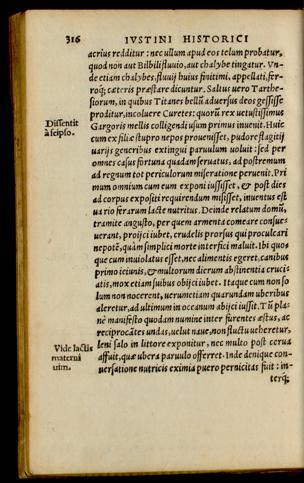 316 IVSTINI HISTORICI
acrius redditur: nec ullum apud eos telum probatur,
quod non aut Bilbili fluuio, aut chalybe tingatur. Vn-
de etiam chalybes, fluuij huius finitimi, appellati, fer-
roq; cæteris præstare dicuntur. Saltus uero Tarthe-
siorum, in quibus Titanes bellũ aduersus deos gessisse
proditur, incoluere Curetes: quorũ rex uetustissimus
Dissentit
à seipso.
Gargoris mellis colligendi usum primus inuenit. Huic
cum ex filiæ stupro nepos prouenisset, pudore flagitij
uarijs generibus extingui paruulum uoluit: sed per
omnes casus fortuna quadam seruatus, ad postremum
ad regnum tot periculorum miseratione peruenit. Pri
mum omnium cum eum exponi iussisset, & post dies
ad corpus expositi requirendum misisset, inuentus est
uario ferarum lacte nutritus. Deinde relatum domũ,
tramite angusto, per quem armenta comeare consue-
uerant, proijci iubet, crudelis prorsus qui proculcari
nepotẽ, quàm simplici morte interfici maluit. Ibi quoq
que cum inuiolatus esset, nec alimentis egeret, canibus
primo ieiunis, & multorum dierum abstinentia crucia
atis, mox etiam suibus obijci iubet. Itaque cum non so
lum non nocerent, uerumetiam quarundam uberibus
aleretur, ad ultimum in oceanum abijci iussit. Tũ pla-
nè manifesto quodam numine inter furentes æstus, ac
reciprocãtes undas, uelut naue, non fluctu ueheretur,
Vide lactis
materni
uim.
leni salo in littore exponitur, nec multo post cerua
affuit, quæ ubera paruulo offerret. Inde denique con-
uersatione nutricis eximia puero pernicitas fuit: in-
terq;